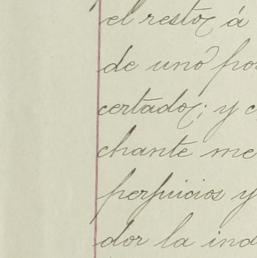 el resto, á
de uno por
certado; y c
chante me
perjuicios y
dor la ind